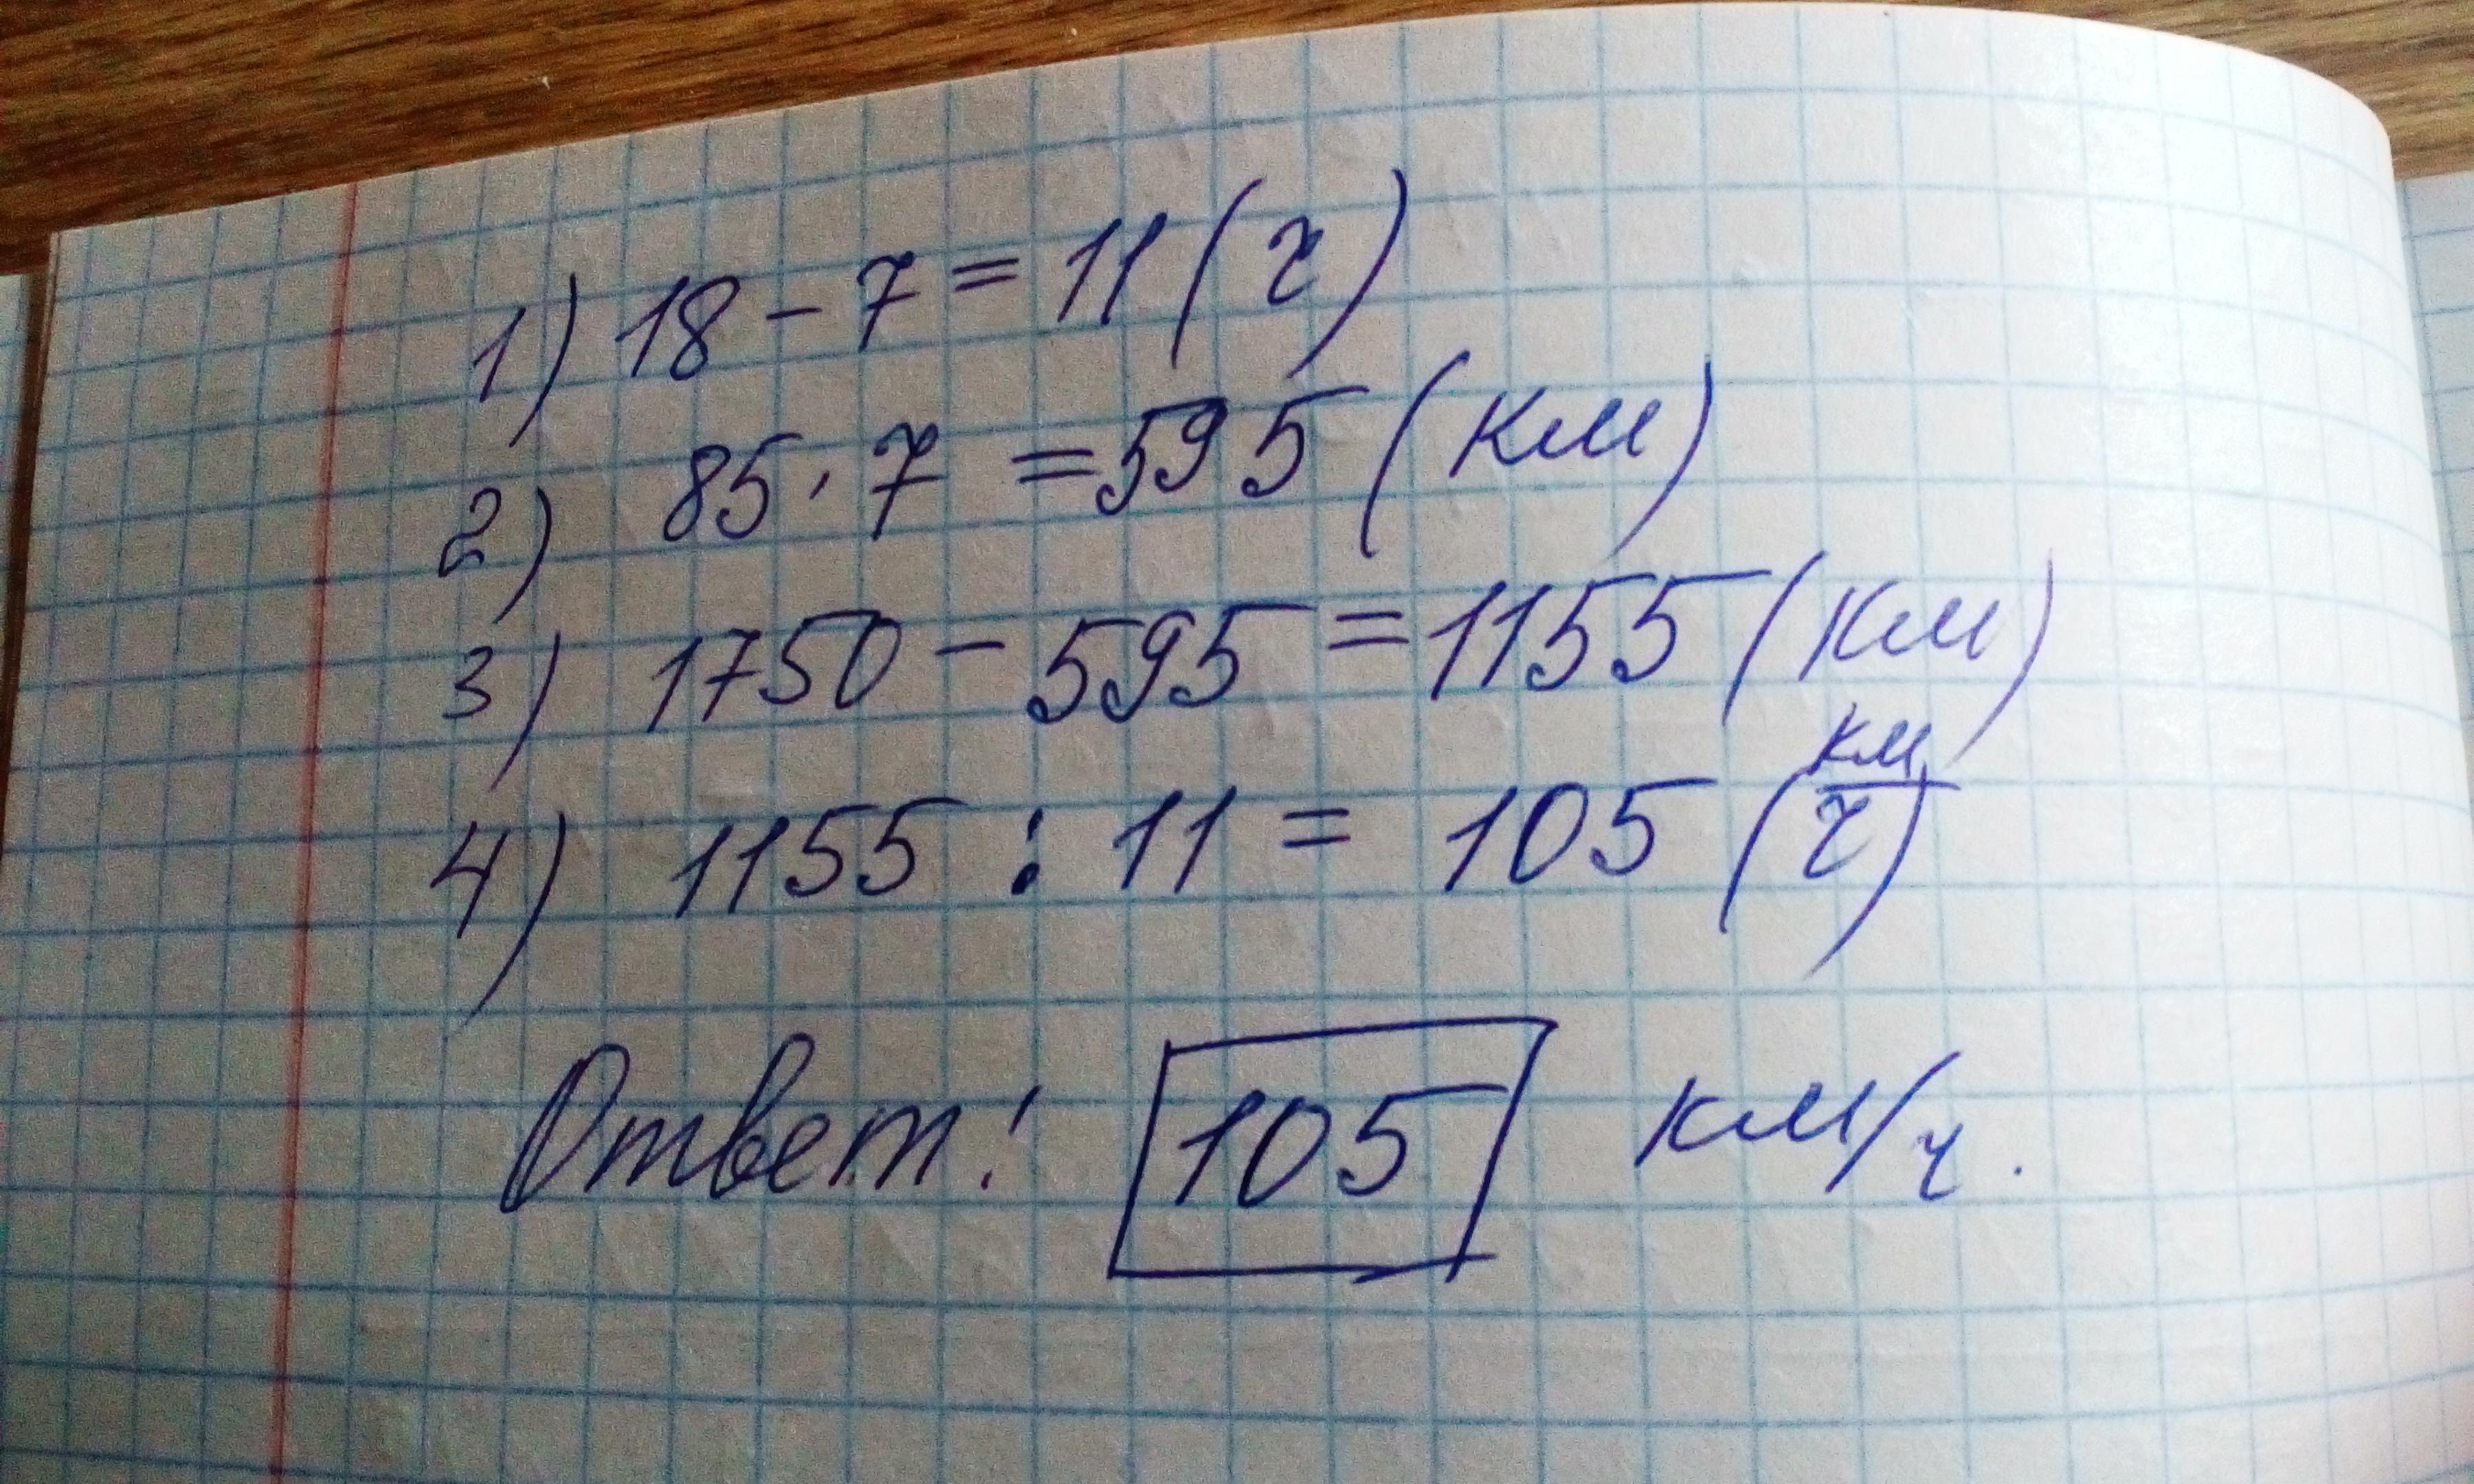 1) 18 - 7 = 11 (ч)
2) 85 · 7 = 595 (км)
3) 1750 - 595 = 1155 (км)
4) 1155 : 11 = 105 (км/ч)
Ответ: 105 км/ч.